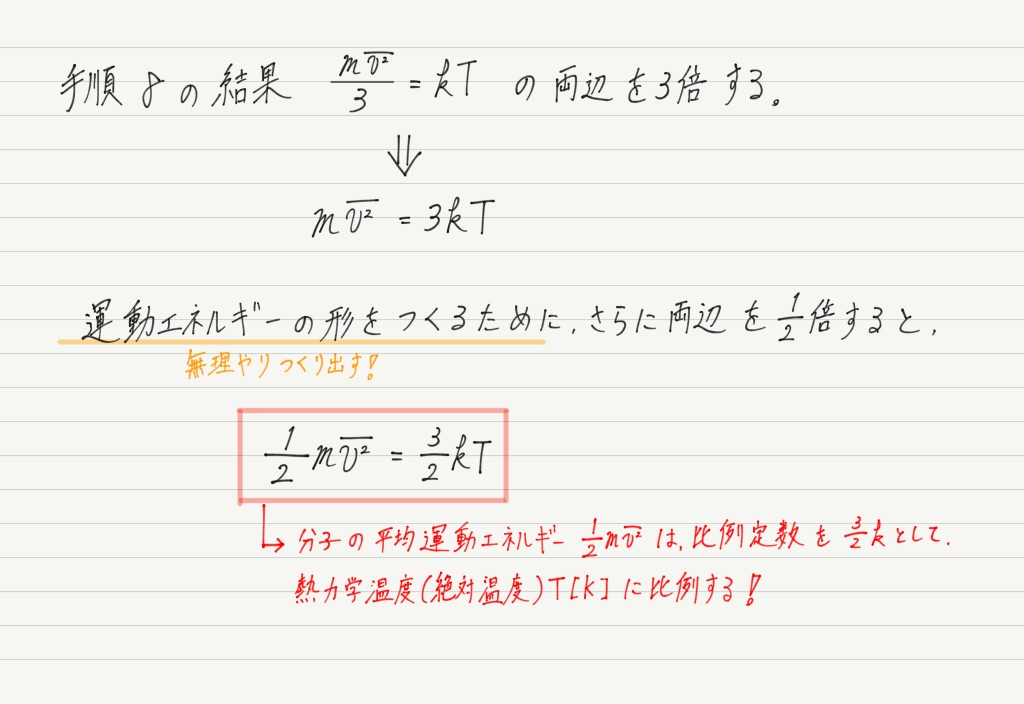 手順8の結果 $\frac{m\overline{v^2}}{3} = kT$ の両辺を3倍する。
⇓
$m\overline{v^2} = 3kT$
運動エネルギーの形をつくるために,さらに両辺を$\frac{1}{2}$倍すると,
無理やりつくり出す!
$\frac{1}{2}m\overline{v^2} = \frac{3}{2}kT$
↳ 分子の平均運動エネルギー $\frac{1}{2}m\overline{v^2}$ は,比例定数を $\frac{3}{2}k$ として,
熱力学温度(絶対温度)T[K]に比例する!